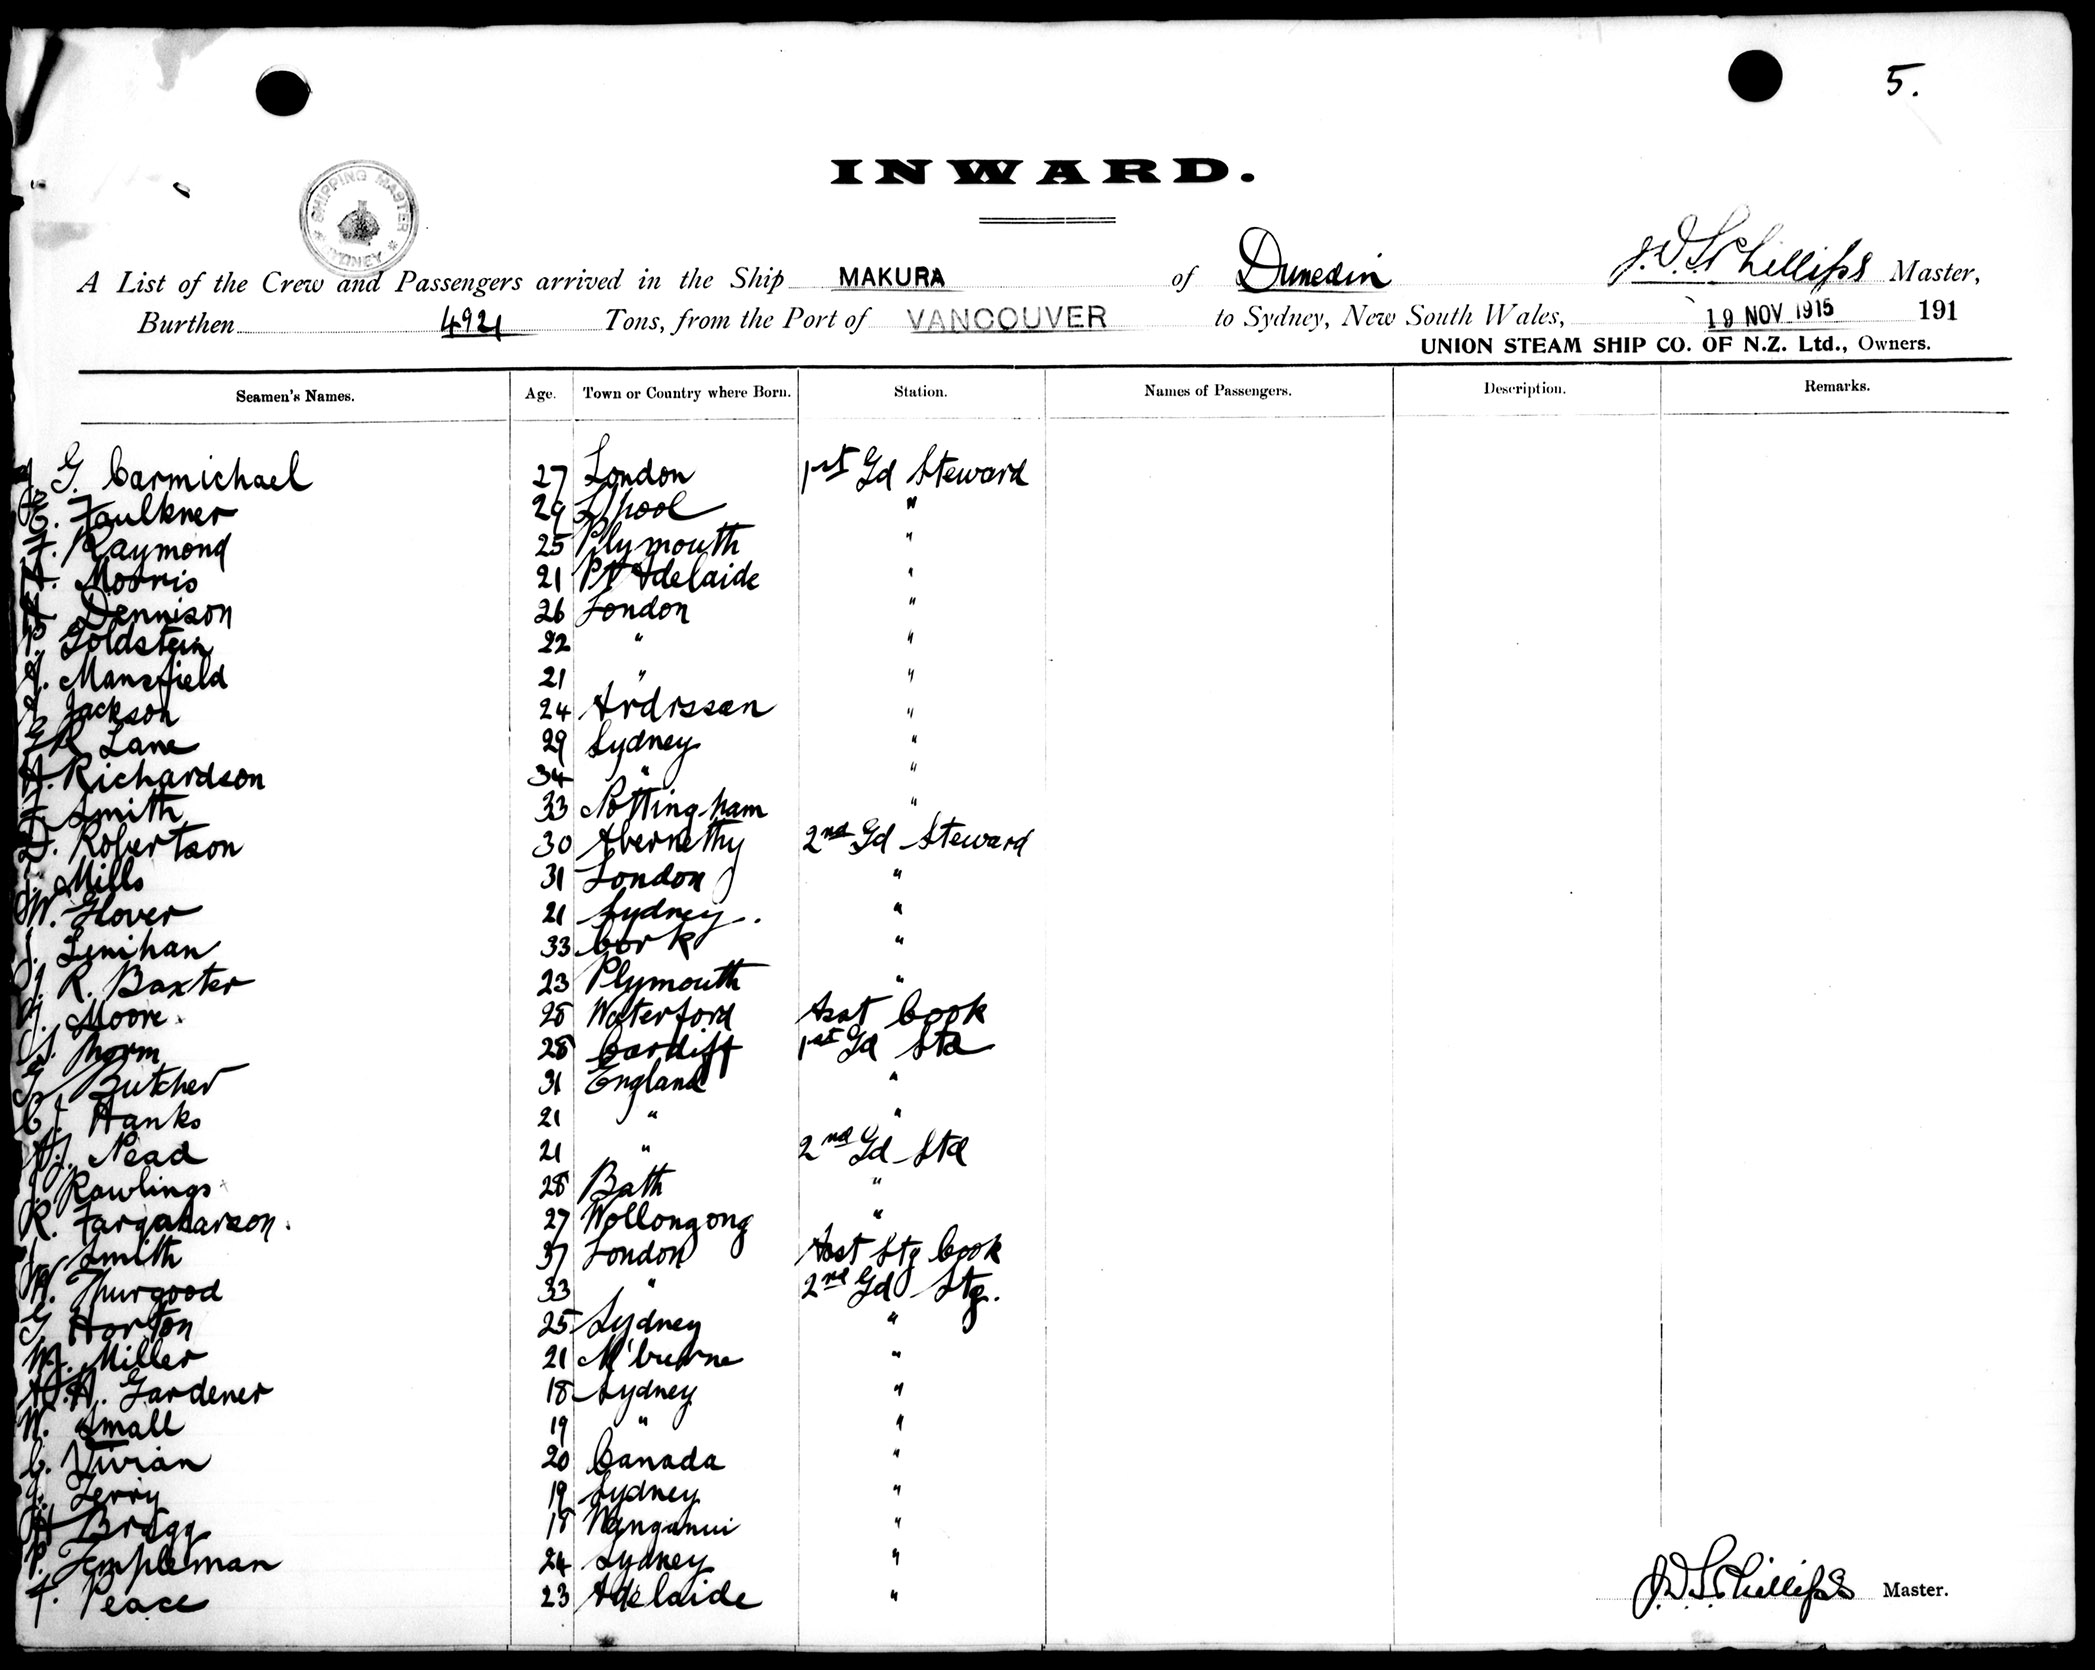 5.
SHIPPING MASTER
SYDNEY
INWARD.
A List of the Crew and Passengers arrived in the Ship MAKURA of Dunedin J.D.S. Phillips Master,
Burthen 4921 Tons, from the Port of VANCOUVER to Sydney, New South Wales, 19 NOV 1915 191
UNION STEAM SHIP CO. OF N.Z. Ltd., Owners.
Seamen's Names. Age. Town or Country where Born. Station. Names of Passengers. Description. Remarks.
G. Carmichael 27 London 1st Gd Steward
E. Faulkner 29 L'pool "
F. Raymond 25 Plymouth "
A. Morris 21 Pt Adelaide "
A Dennison 26 London "
P. Goldstein 22 " "
Mansfield 21 " "
Jackson 24 Ardrssan "
R Lane 29 Sydney "
A. Richardson 34 " "
F. Smith 33 Nottingham "
D. Robertson 30 Abernethy 2nd Gd Steward
Mills 31 London "
W. Glover 21 Sydney. "
J. Lenihan 33 Cork "
J. R. Baxter 23 Plymouth "
Moore 28 Waterford Asst Cook
Thorm 28 Cardiff 1st Gd Std
G. Butcher 31 England "
C. J. Hanks 21 " "
Nead 21 " 2nd Gd Std
J. Rawlings 28 Bath "
R. Farqaharson. 27 Wollongong "
Smith 37 London Asst Stg Cook
W. Thurgood 33 " 2nd Gd Stg.
G Horton 25 Sydney "
W. Miller 21 M'burne "
A. Gardener 18 Sydney "
W. Small 19 " "
C. Vivian 20 Canada "
J. Terry 19 Sydney "
H Bragg 18 Wanganui "
P. Templeman 24 Sydney "
F. Peace 23 Adelaide "
J.D.S. Phillips Master.